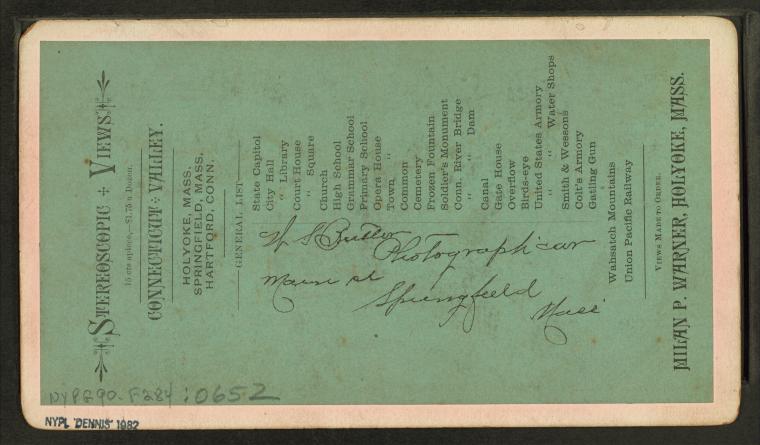 STEREOSCOPIC VIEWS
15 cts apiece,—$1.75 a Dozen.
CONNECTICUT VALLEY.
HOLYOKE, MASS.
SPRINGFIELD, MASS.
HARTFORD, CONN.
GENERAL LIST
State Capitol
City Hall
" Library
Court House
" Square
Church
High School
Grammar School
Primary School
Opera House
Town "
Common
Cemetery
Frozen Fountain
Soldier's Monument
Conn. River Bridge
" " Dam
Canal
Gate House
Overflow
Birds-eye
United States Armory
" " Water Shops
Smith & Wessons
Colt's Armory
Gatling Gun
Wahsatch Mountains
Union Pacific Railway
VIEWS MADE TO ORDER.
MILAN P. WARNER, HOLYOKE, MASS.
W S Butler
Photograph car
Main st
Springfield
Mass
NYPG90-F284:0652
NYPL "DENNIS" 1982